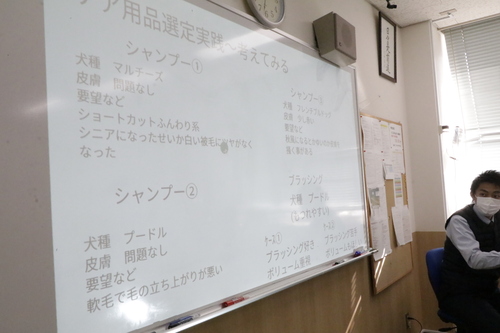 ケア用品選定実践～考えてみる
シャンプー①
犬種 マルチーズ
皮膚 問題なし
要望など
ショートカットふんわり系
シニアになったせいか白い被毛にツヤがなく
なった
シャンプー②
犬種 プードル
皮膚 問題なし
要望など
軟毛で毛の立ち上がりが悪い
シャンプー
犬種 フレンチブルドッグ
皮膚
要望など
ブラッシング
犬種 プードル
(もつれやすい)
ケース①
ブラッシング好き
ボリューム重視
ケース②
ブラッシング
ボリューム